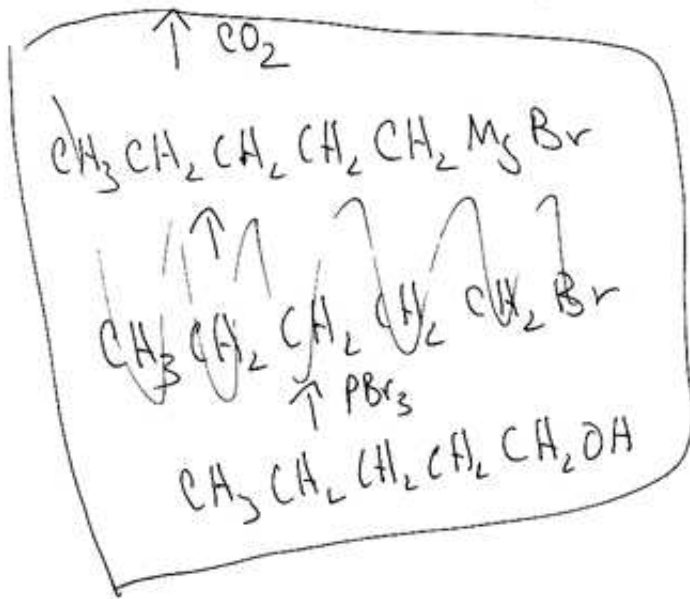 ↑ CO₂
CH₃CH₂CH₂CH₂CH₂MgBr
↑
CH₃CH₂CH₂CH₂CH₂Br
↑ PBr₃
CH₃CH₂CH₂CH₂CH₂OH